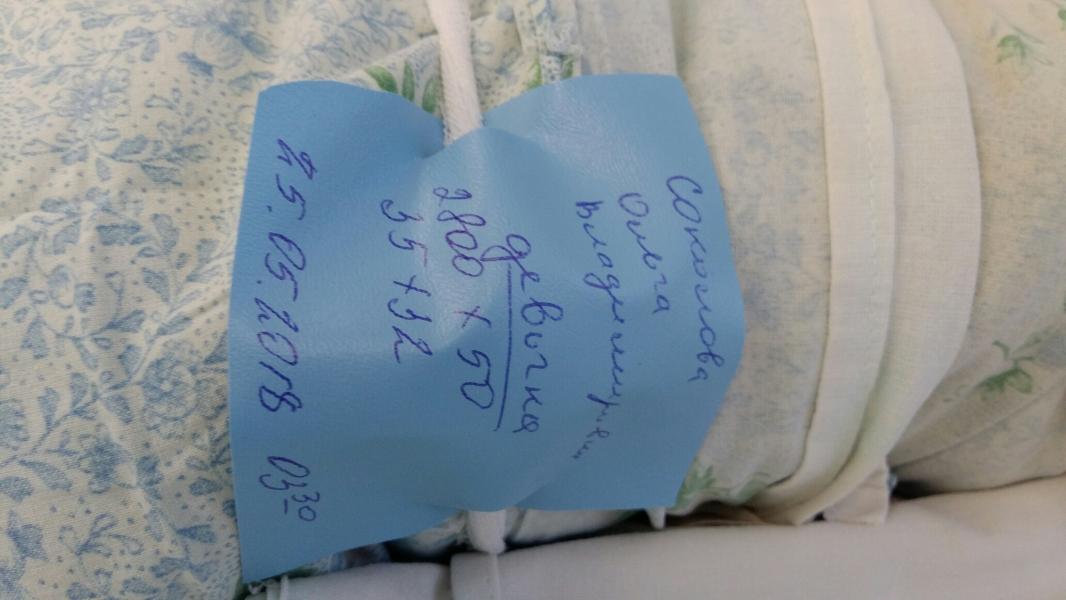 Соколова
Ольга
Владимировн
девочка
2800 х 50
35 х 32
25.05.2018 03 30